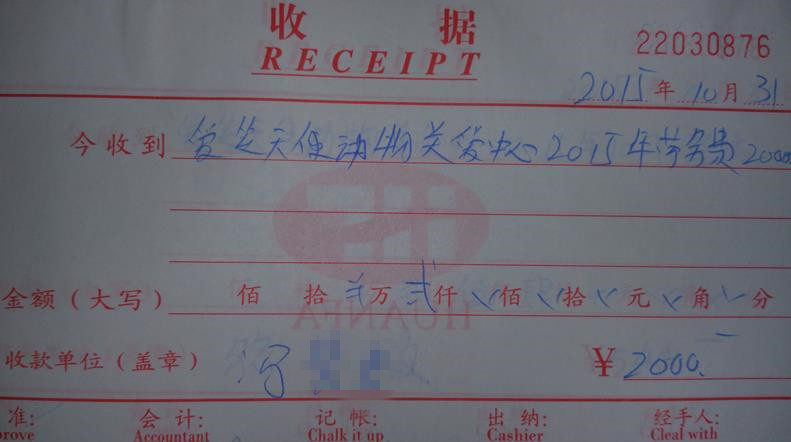 收 据
RECEIPT
22030876
2015年10月31
今收到 爱生天使动物关爱中心2015年劳务费2000
金额（大写） 佰 拾 万 贰仟 佰 拾 元 角 分
HUANFA
收款单位（盖章） ￥2000.-
准: 会计: 记帐: 出纳: 经手人:
prove Accountant Chalk it up Cashier Cleal with